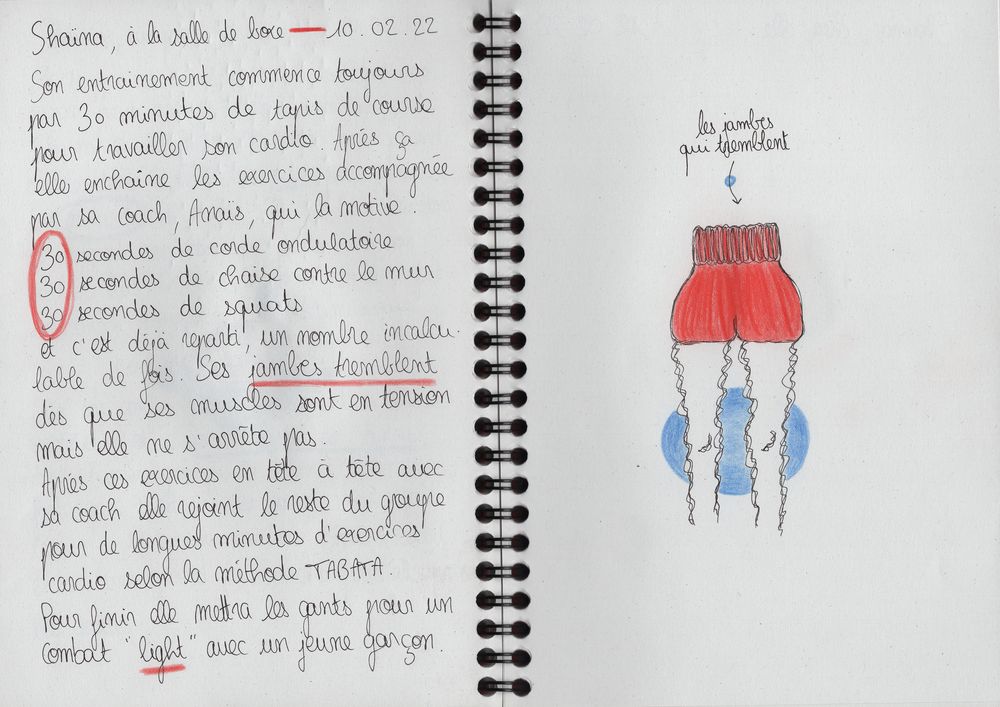 Shaïna, à la salle de boxe — 10.02.22
Son entrainement commence toujours
par 30 minutes de tapis de course
pour travailler son cardio. Après ça
elle enchaîne les exercices accompagnée
par sa coach, Anaïs, qui la motive.
30 secondes de corde ondulatoire
30 secondes de chaise contre le mur
30 secondes de squats
et c'est déjà reparti, un nombre incalcu-
lable de fois. Ses jambes tremblent
dès que ses muscles sont en tension
mais elle ne s'arrête pas.
Après ces exercices en tête à tête avec
sa coach elle rejoint le reste du groupe
pour de longues minutes d'exercices
cardio selon la méthode TABATA.
Pour finir elle mettra les gants pour un
combat "light" avec un jeune garçon.
les jambes
qui tremblent